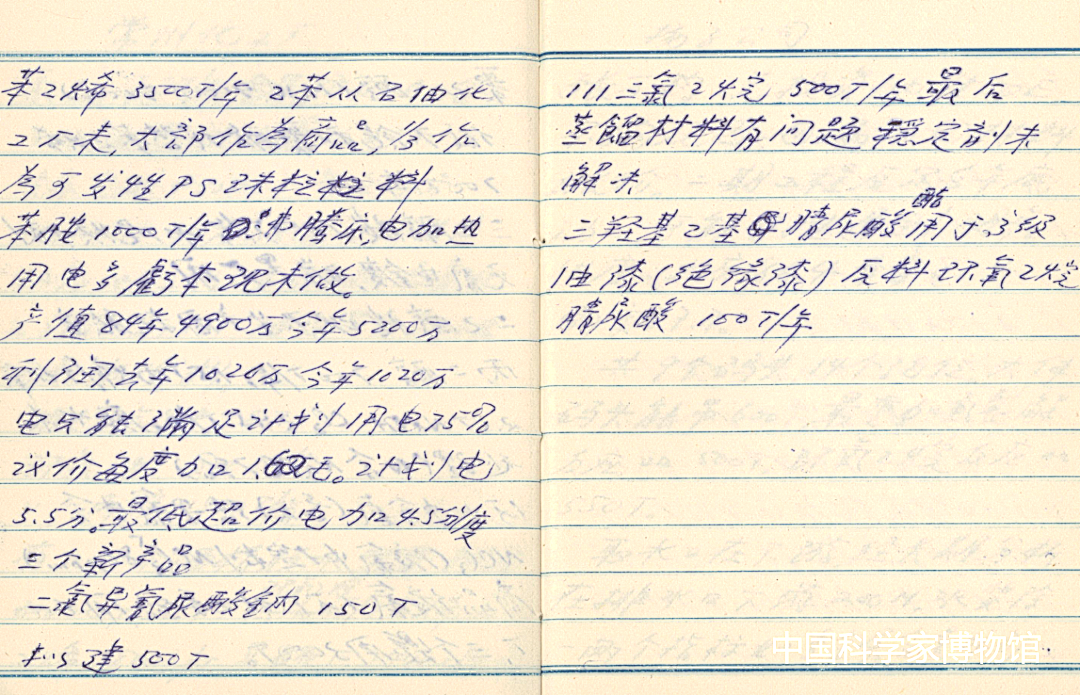 苯乙烯3500T/年 乙苯从石油化
工厂来,大部作為商品,少作
為可发性PS珠粒料
苯胺1000T/年 沸腾床,电加热
用电多虧本现未做。
产值84年4900万今年5200万
利润去年1020万今年1020万
电只能满足计划用电75%
议价每度加1.60毛。计划电
5.5分。最低超价电加4.5分/度
三个新产品
二氯异氰尿酸钠150T
拟建500T
111三氯乙烷 500T/年最后
蒸餾材料有问题 穩定剂未
解决
三羟基乙基腈尿酸酯用于3级
油漆(绝缘漆)反料环氧乙烷
腈尿酸 100T/年
中国科学家博物馆